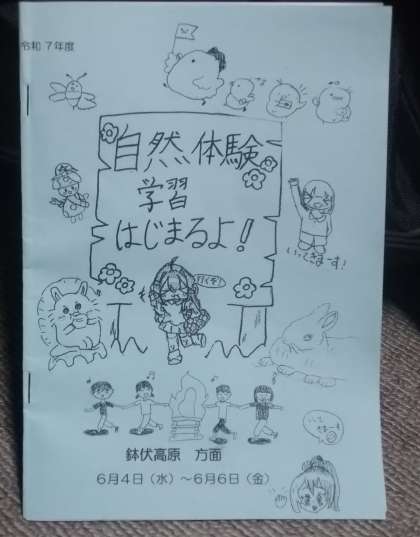 令和７年度
自然体験
学習
はじまるよ！
いってきまーす！
鉢伏高原　方面
６月４日（水）～６月６日（金）